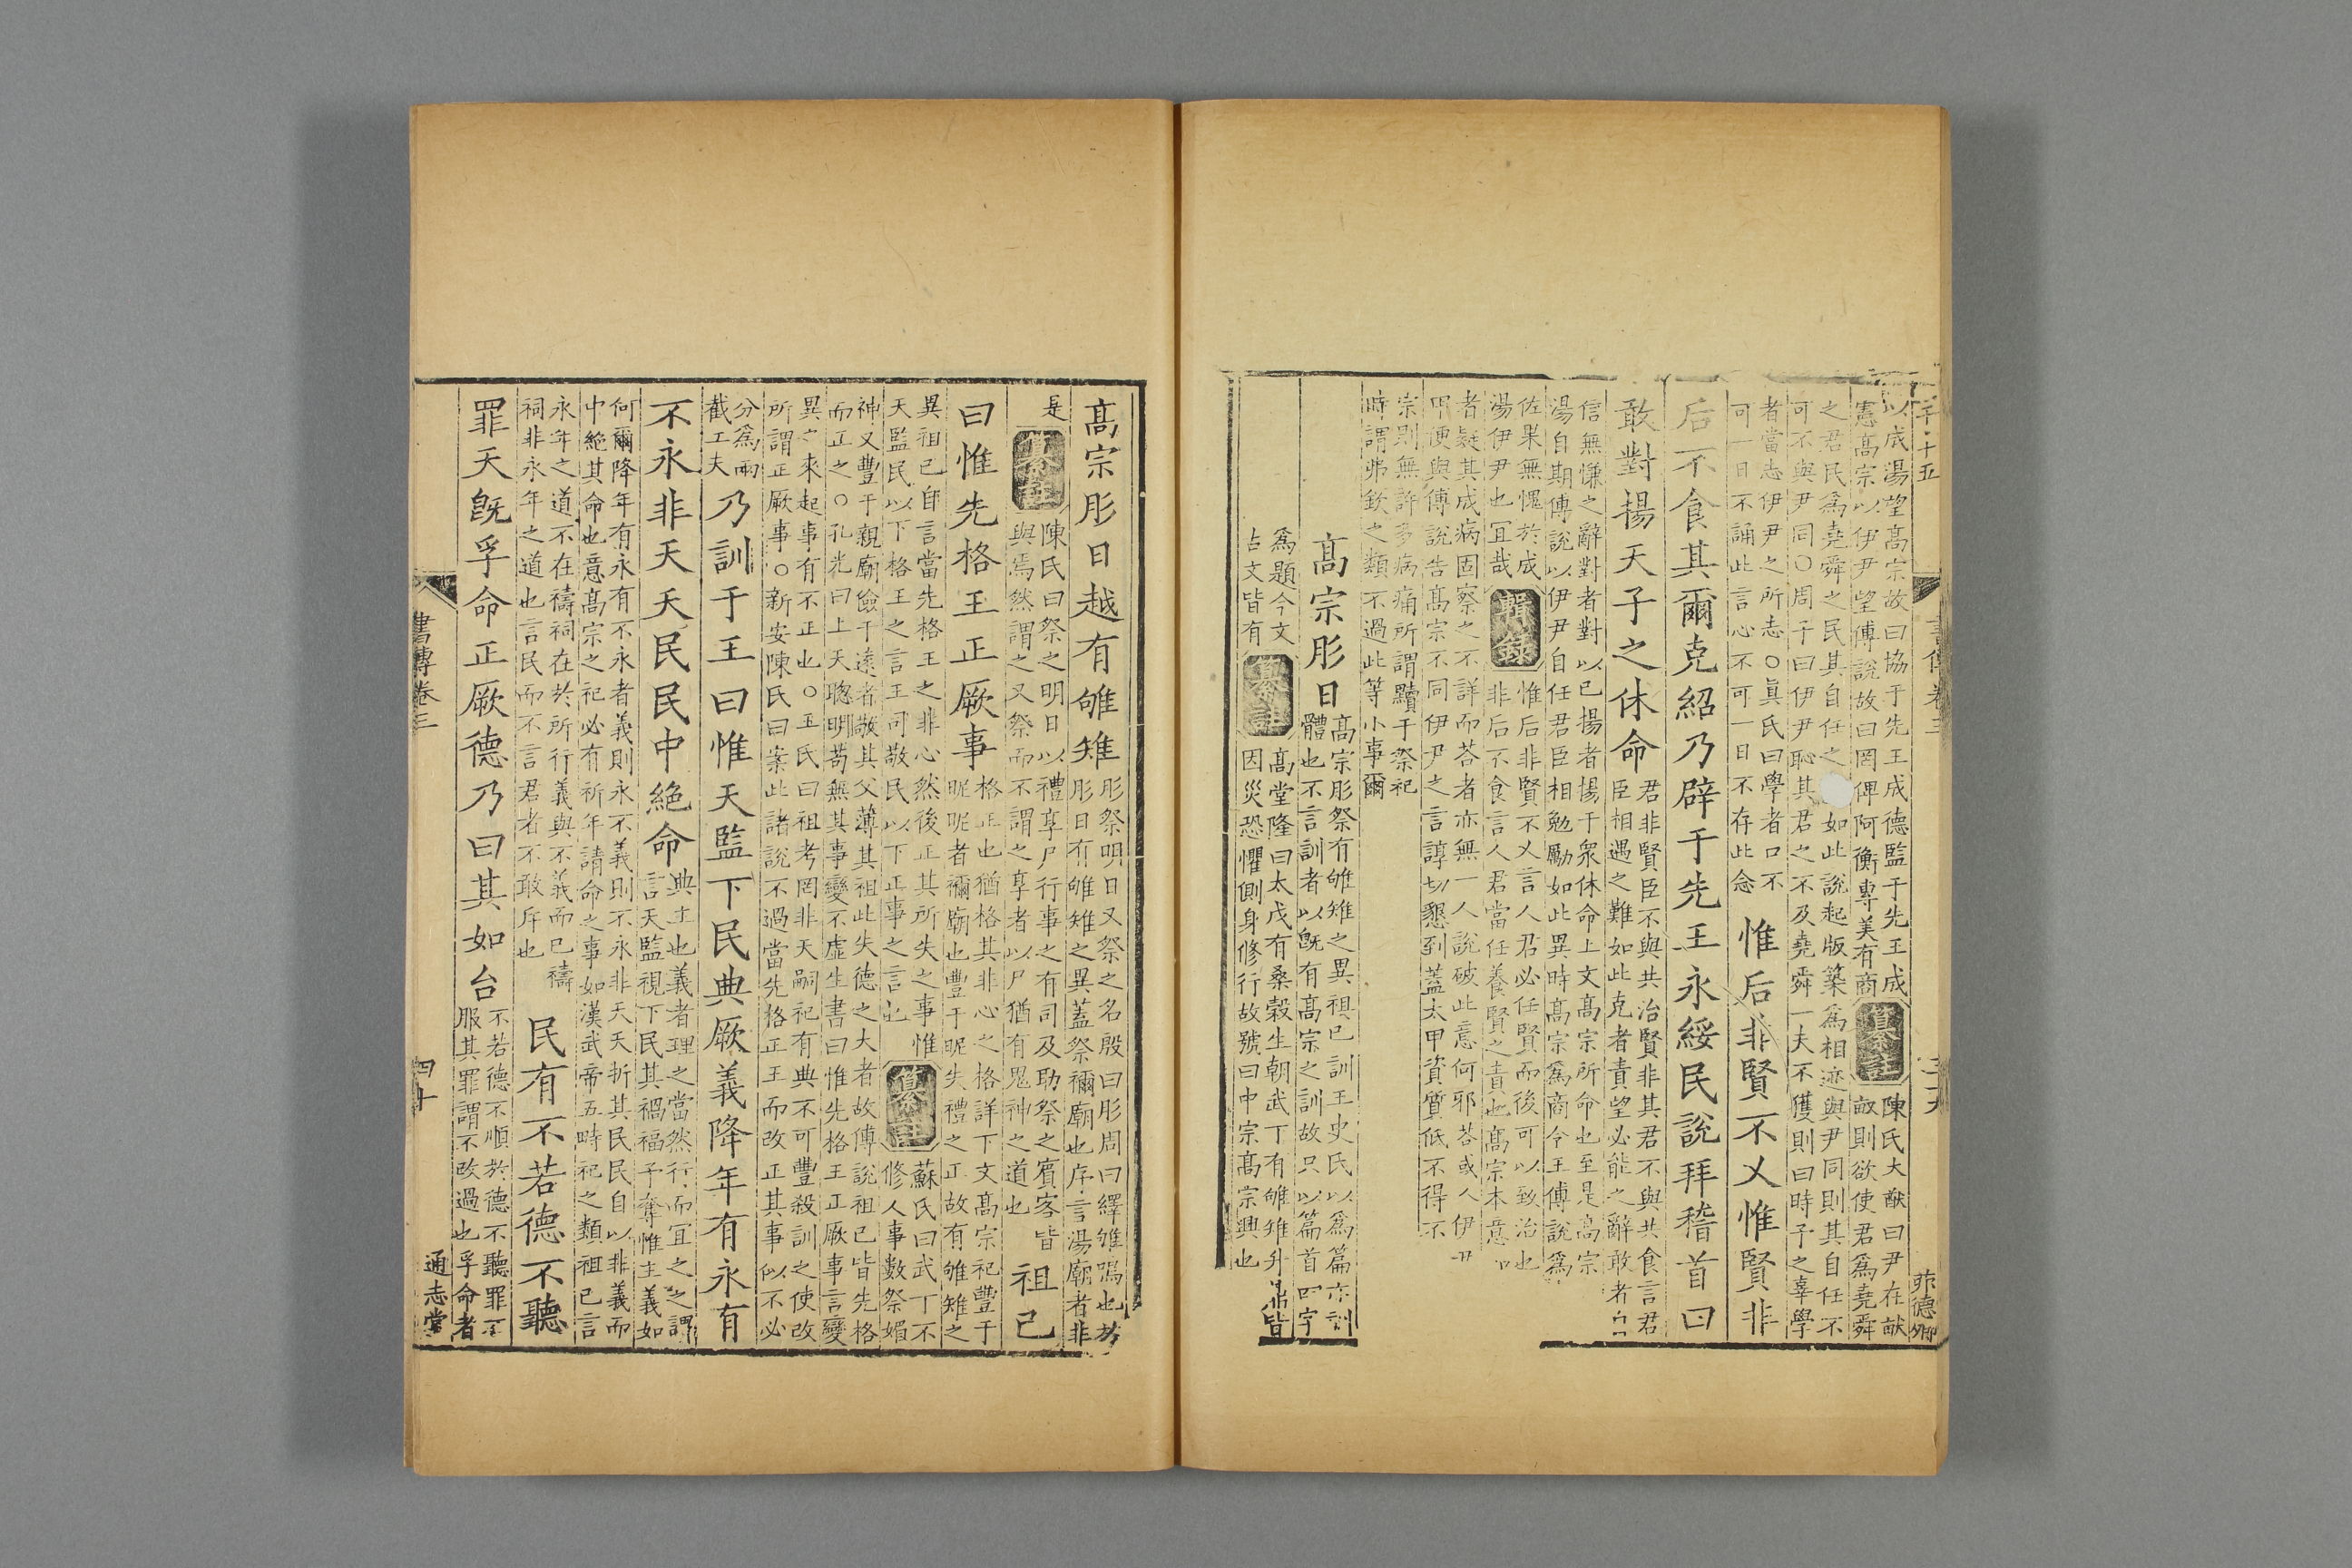 書傳卷三
以成湯望髙宗故曰協于先王成德監于先王成
憲髙宗以伊尹望傅說故曰罔俾阿衡專美有商
纂註
陳氏大猷曰尹在畎
畝則欲使君爲堯舜
之君民爲堯舜之民其自任之如此說起版築爲相迹與尹同則其自任不
可不與尹同○周子曰伊尹恥其君之不及堯舜一夫不獲則曰時予之辜學
者當志伊尹之所志○眞氏曰學者口不
可一日不誦此言心不可一日不存此念
惟后非賢不乂惟賢非
后不食其爾克紹乃辟于先王永綏民說拜稽首曰
敢對揚天子之休命
君非賢臣不與共治賢非其君不與共食言君
臣相遇之難如此克者責望必能之辭敢者
信無慊之辭對者對以已揚者揚于衆休命上文髙宗所命也至是髙宗
湯自期傅說以伊尹自任君臣相勉勵如此異時髙宗爲商令王傅說爲
佐果無愧於成
湯伊尹也宜哉
輯錄
惟后非賢不乂言人君必任賢而後可以致治也
非后不食言人君當任養賢之責也髙宗本意如
者疑其成病固察之不詳而荅者亦無一人說破此意何邪荅或人伊尹
甲便與傅說告髙宗不同伊尹之言諄切懇到蓋太甲資質低不得不
宗則無許多病痛所謂黷于祭祀
時謂弗欽之類不過此等小事爾
髙宗肜日
髙宗肜祭有雊雉之異祖已訓王史氏以爲篇亦訓
體也不言訓者以旣有髙宗之訓故只以篇首四字
爲題今文
古文皆有
纂註
髙堂隆曰太戊有桑榖生朝武丁有雊雉升鼎皆
因災恐懼側身修行故號曰中宗髙宗興也
髙宗肜日越有雊雉
肜祭明日又祭之名殷曰肜周曰繹雊鳴也於
肜日有雊雉之異蓋祭禰廟也序言湯廟者非
是
纂註
陳氏曰祭之明日以禮享尸行事之有司及助祭之賓客皆
與焉然謂之又祭而不謂之享者以尸猶有鬼神之道也
祖己
曰惟先格王正厥事
格正也猶格其非心之格詳下文髙宗祀豐于
昵昵者禰廟也豐于昵失禮之正故有雊雉之
異祖已自言當先格王之非心然後正其所失之事惟
天監民以下格王之言王司敬民以下正事之言也
纂註
蘇氏曰武丁不
修人事數祭媚
神又豐于親廟儉于逺者敬其父薄其祖此失德之大者故傅說祖已皆先格
而正之○孔光曰上天聰明苟無其事變不虛生書曰惟先格王正厥事言變
異之來起事有不正也○王氏曰祖考罔非天嗣祀有典不可豐殺訓之使改
所謂正厥事○新安陳氏曰案此諸說不過當先格正王而改正其事似不必
分爲兩
截工夫
乃訓于王曰惟天監下民典厥義降年有永有
不永非天夭民民中絶命
典主也義者理之當然行而宜之之謂
言天監視下民其禍福予奪惟主義如
何爾降年有永有不永者義則永不義則不永非天夭折其民民自以非義而
中絶其命也意髙宗之祀必有祈年請命之事如漢武帝五畤祀之類祖已言
永年之道不在禱祠在於所行義與不義而已禱
祠非永年之道也言民而不言君者不敢斥也
民有不若德不聽
罪天旣孚命正厥德乃曰其如台
不若德不順於德不聽罪不
服其罪謂不改過也孚命者
書傳卷三
四十
通志堂